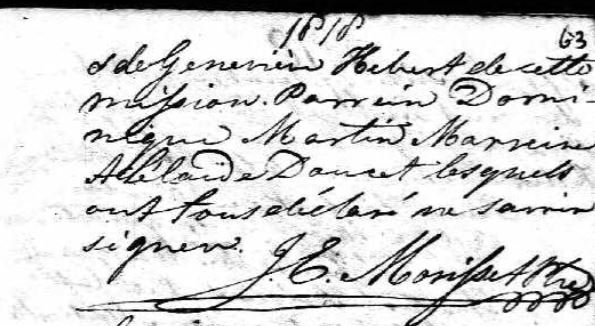 1818
63
& de Geneviève Hebert de cette
mission. Parrein Domi-
nique Martin Marreine
Adélaïde Doucet lesquels
ont tous déclaré ne savoir
signer.
J. E. Morisset Ptre